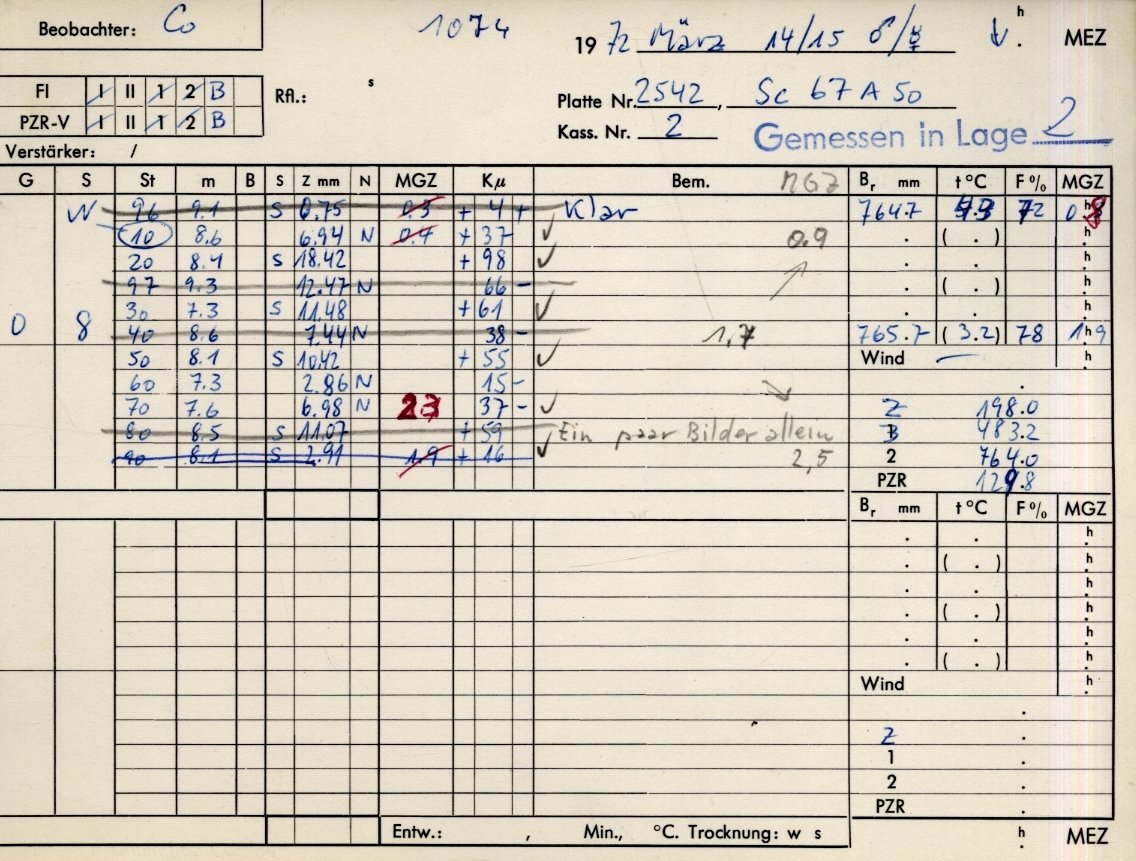 Beobachter: Co 1074 19 72 März 14/15 ♂/☿ h . MEZ
FI I II 1 2 B Rfl.: s Platte Nr. 2542, Sc 67 A 50
PZR-V I II 1 2 B Kass. Nr. 2 Gemessen in Lage 2
Verstärker: /
G S St m B S Z mm N MGZ Kμ Bem. MGZ Br mm t °C F % MGZ
W 96 9.1 S 0.75 0.3 + 4 + Klar 764.7 72 0 h 8
10 8.6 6.94 N 0.4 + 37 ✓ 0.9 . ( . ) h
20 8.4 S 18.42 + 98 ✓ . . h
97 9.3 12.47 N 66 - . ( . ) h
30 7.3 S 11.48 + 61 ✓ . . h
0 8 40 8.6 7.44 N 38 - 1,7 765.7 ( 3.2 ) 78 1 h 9
50 8.1 S 10.42 + 55 ✓ Wind — h
60 7.3 2.86 N 15 - .
70 7.6 6.98 N 23 37 - ✓ Z 198.0
80 8.5 S 11.07 + 59 Ein paar Bilder allein 483.2
90 8.1 S 2.91 1.9 + 16 ✓ 2,5 2 764.0
PZR 129.8
Br mm t °C F % MGZ
. . h
. ( . ) h
. . h
. ( . ) h
. . h
. ( . ) h
Wind h
.
Z .
1 .
2 .
PZR .
Entw.: , Min., °C. Trocknung: w s h . MEZ